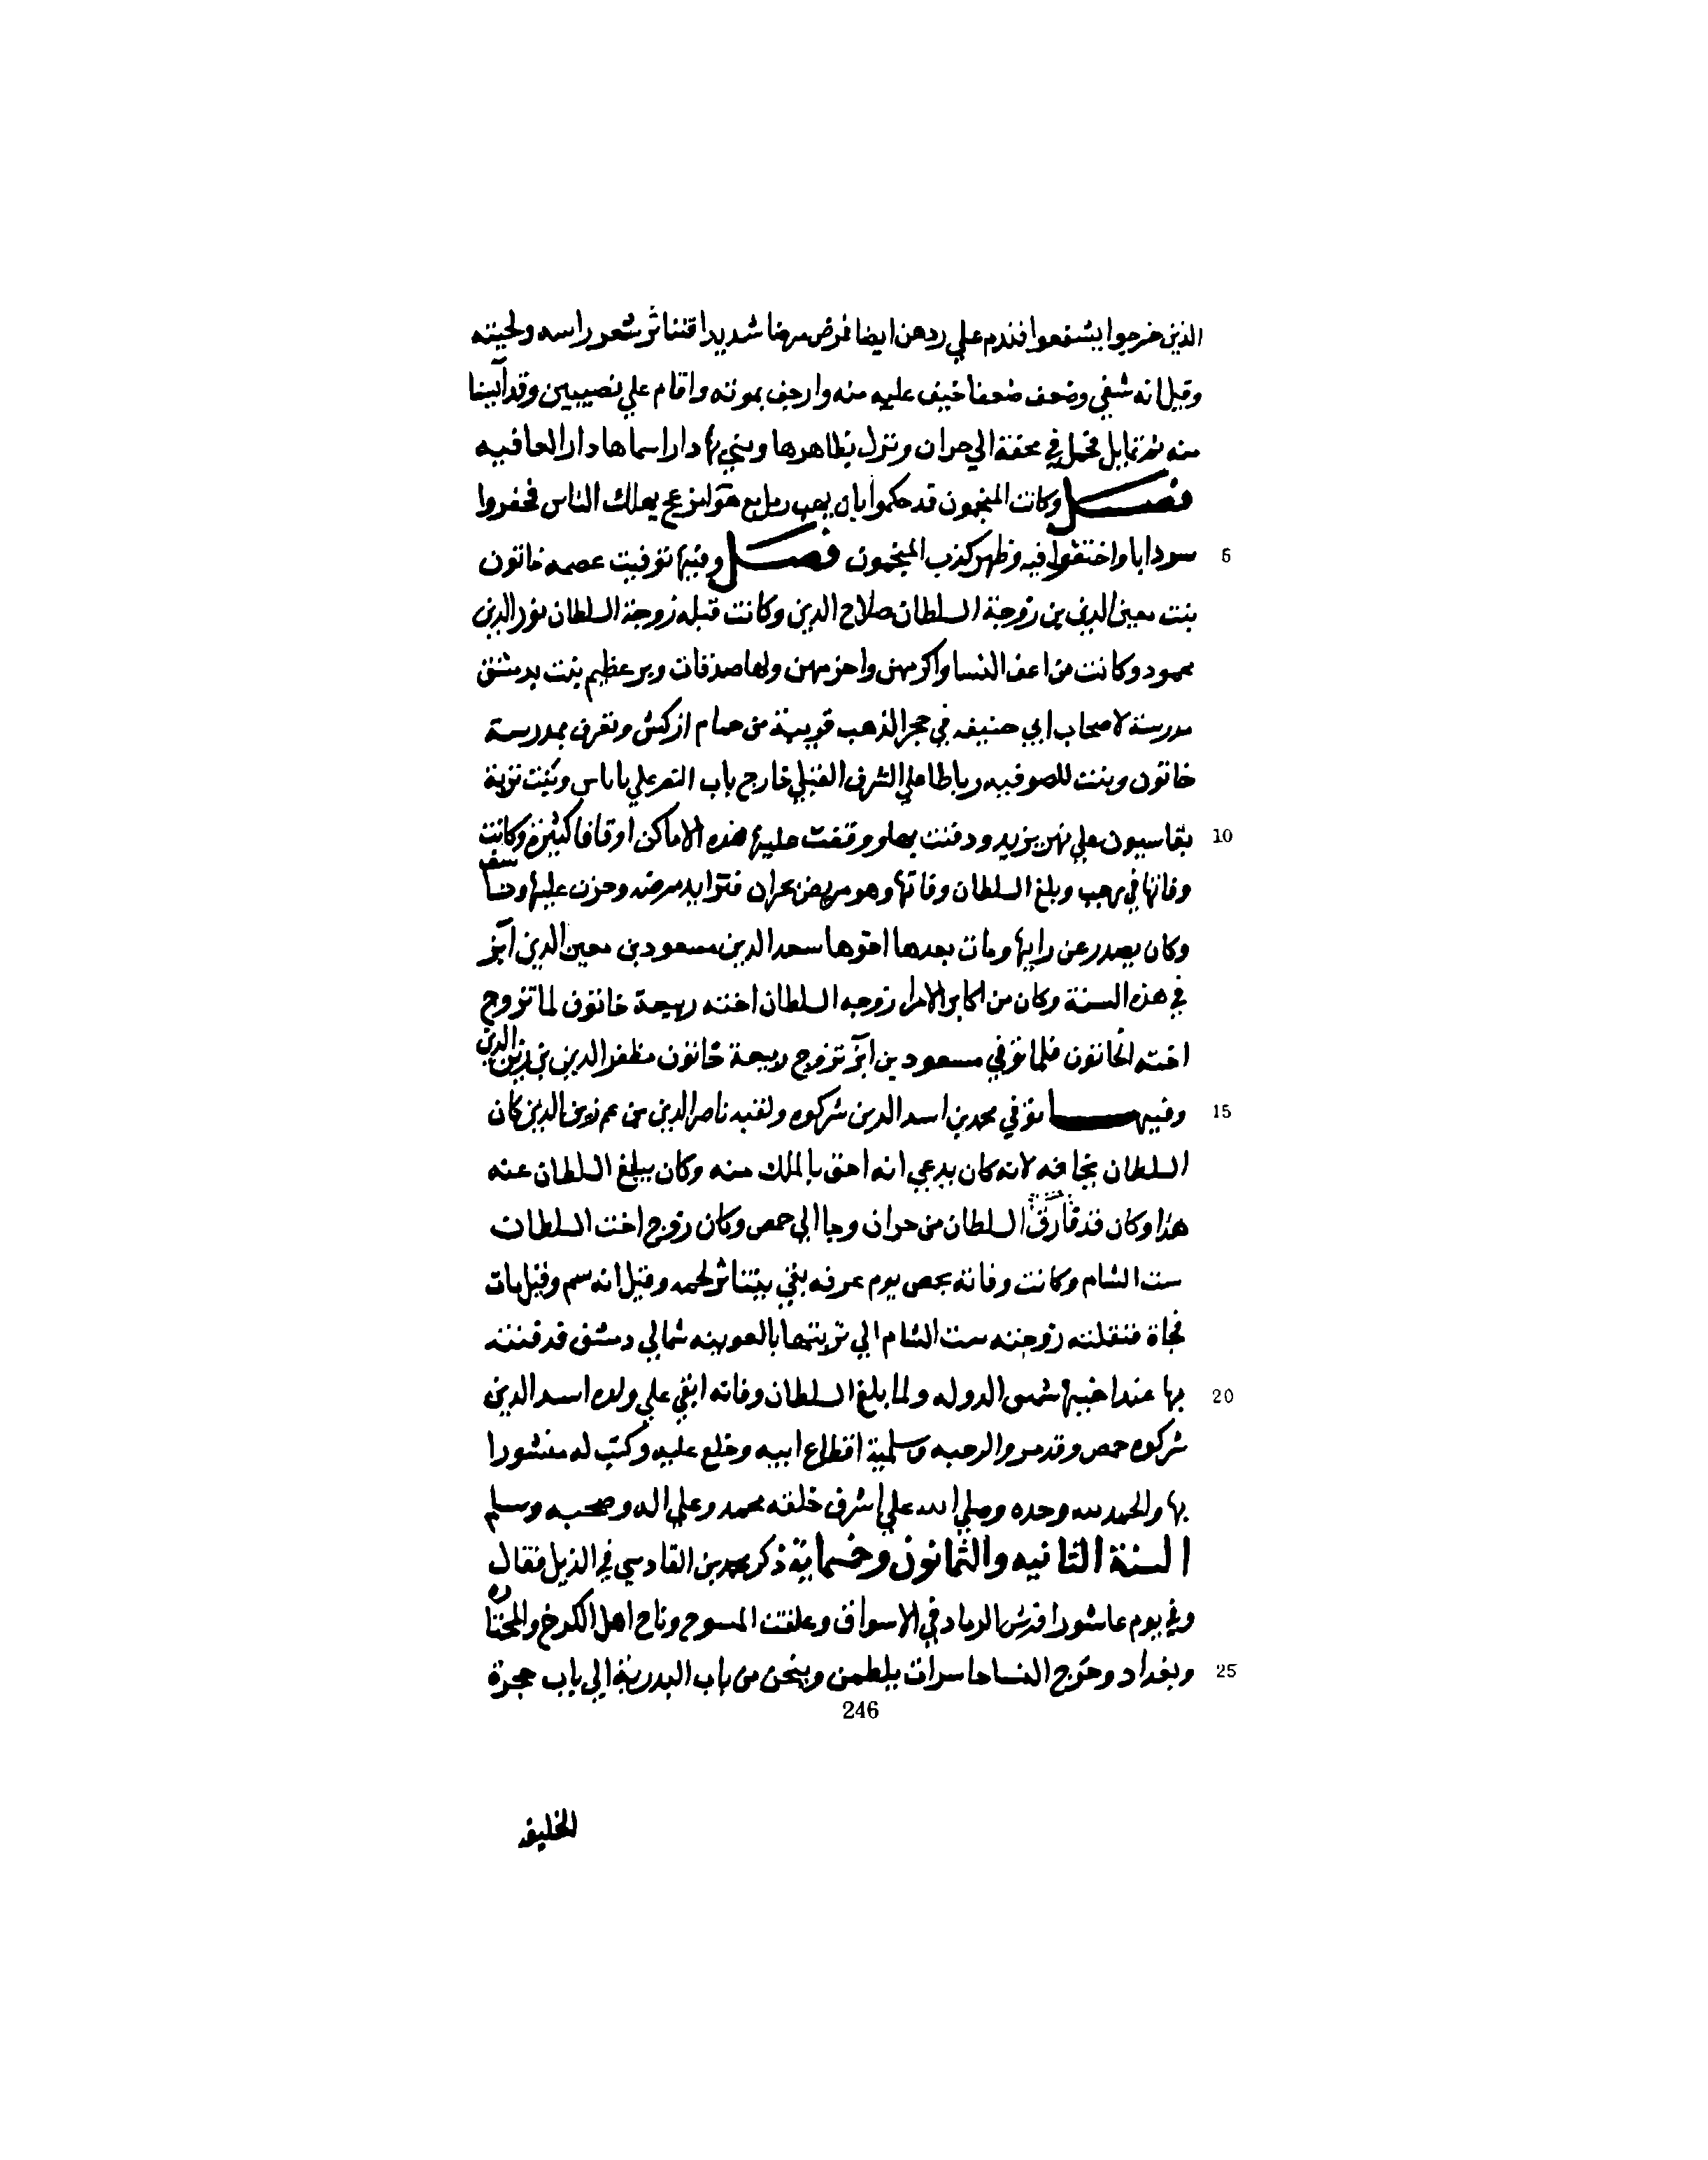 الذين خرجوا يشفعوا فندم علي ردهن ايضا فمرض مرضا شديدا فتناثر شعر راسه ولحيته
وقيل انه شقي وضعف ضعفا خيف عليه منه وارجف بموته واقام علي نصيبين وقد
منه ثم تمايل فحمل في محفة الي حران ونزل بظاهرها وبني بها دارا سماها دار العافيه
فصل وكانت المنجمون قد حكموا بان يهب ريح مزعج يهلك الناس فحفروا
سردابا واختفوا فيه وظهر كذب المنجمون فصل وفيها توفيت عصمه خاتون
بنت معين الدين زوجة السلطان صلاح الدين وكانت قبله زوجة السلطان نور الدين
محمود وكانت من اعف النسا واكرمهن واحزمهن ولها صدقات وبر عظيم بنت بدمشق
مدرسة لاصحاب ابي حنيفه في حجر الذهب قريبة من حمام ازكش وتعرف بمدرسة
خاتون وبنت للصوفيه رباطا علي الشرف القبلي خارج باب النصر علي باناس وبنت تربة
بقاسيون علي نهر يزيد ودفنت بها ووقفت عليها هذه الاماكن اوقافا كثيرة وكانت
وفاتها في رجب وبلغ السلطان وفاتها وهو مريض بحران فتزايد مرضه وحزن عليها وتاسف
وكان يصدر عن رايها ومات بعدها اخوها سعد الدين مسعود بن معين الدين انز
في هذه السنة وكان من اكابر الامرا زوجه السلطان اخته ربيعة خاتون لما تزوج
اخته الخاتون فلما توفي مسعود بن انز تزوج ربيعة خاتون مظفر الدين بن زين الدين
وفيها توفي محمد بن اسد الدين شركوه ولقبه ناصر الدين بن عم كان
السلطان يخافه لانه كان يدعي انه احق بالملك منه وكان يبلغ السلطان عنه
هذا وكان قد فارق السلطان من حران وجا الي حمص وكان زوج اخت السلطان
ست الشام وكانت وفاته بحمص يوم عرفه بقي يتناثر لحمه وقيل انه سم وقيل مات
فجاة فنقلته زوجته ست الشام الي تربتها بالعوينه شمالي دمشق فدفنته
بها عند اخيها شمس الدوله ولما بلغ السلطان وفاته ابقي علي ولده اسد الدين
شركوه حمص وتدمر والرحبه وسلمية اقطاع ابيه وخلع عليه وكتب له منشورا
بها والحمد لله وحده وصلي الله علي اشرف خلقه محمد وعلي اله وصحبه وسلم
السنة الثانيه والثمانون وخسماية ذكر محمد بن القادسي في الذيل فقال
وفي يوم عاشورا فرش الرماد في الاسواق وعلقت المسوح وناح اهل الكرخ والمختارة
وبغداد وخرج النسا حاسرات يلطمن وينحن من باب البدرية الي باب حجرة
الخليفه
5
10
15
20
25
246